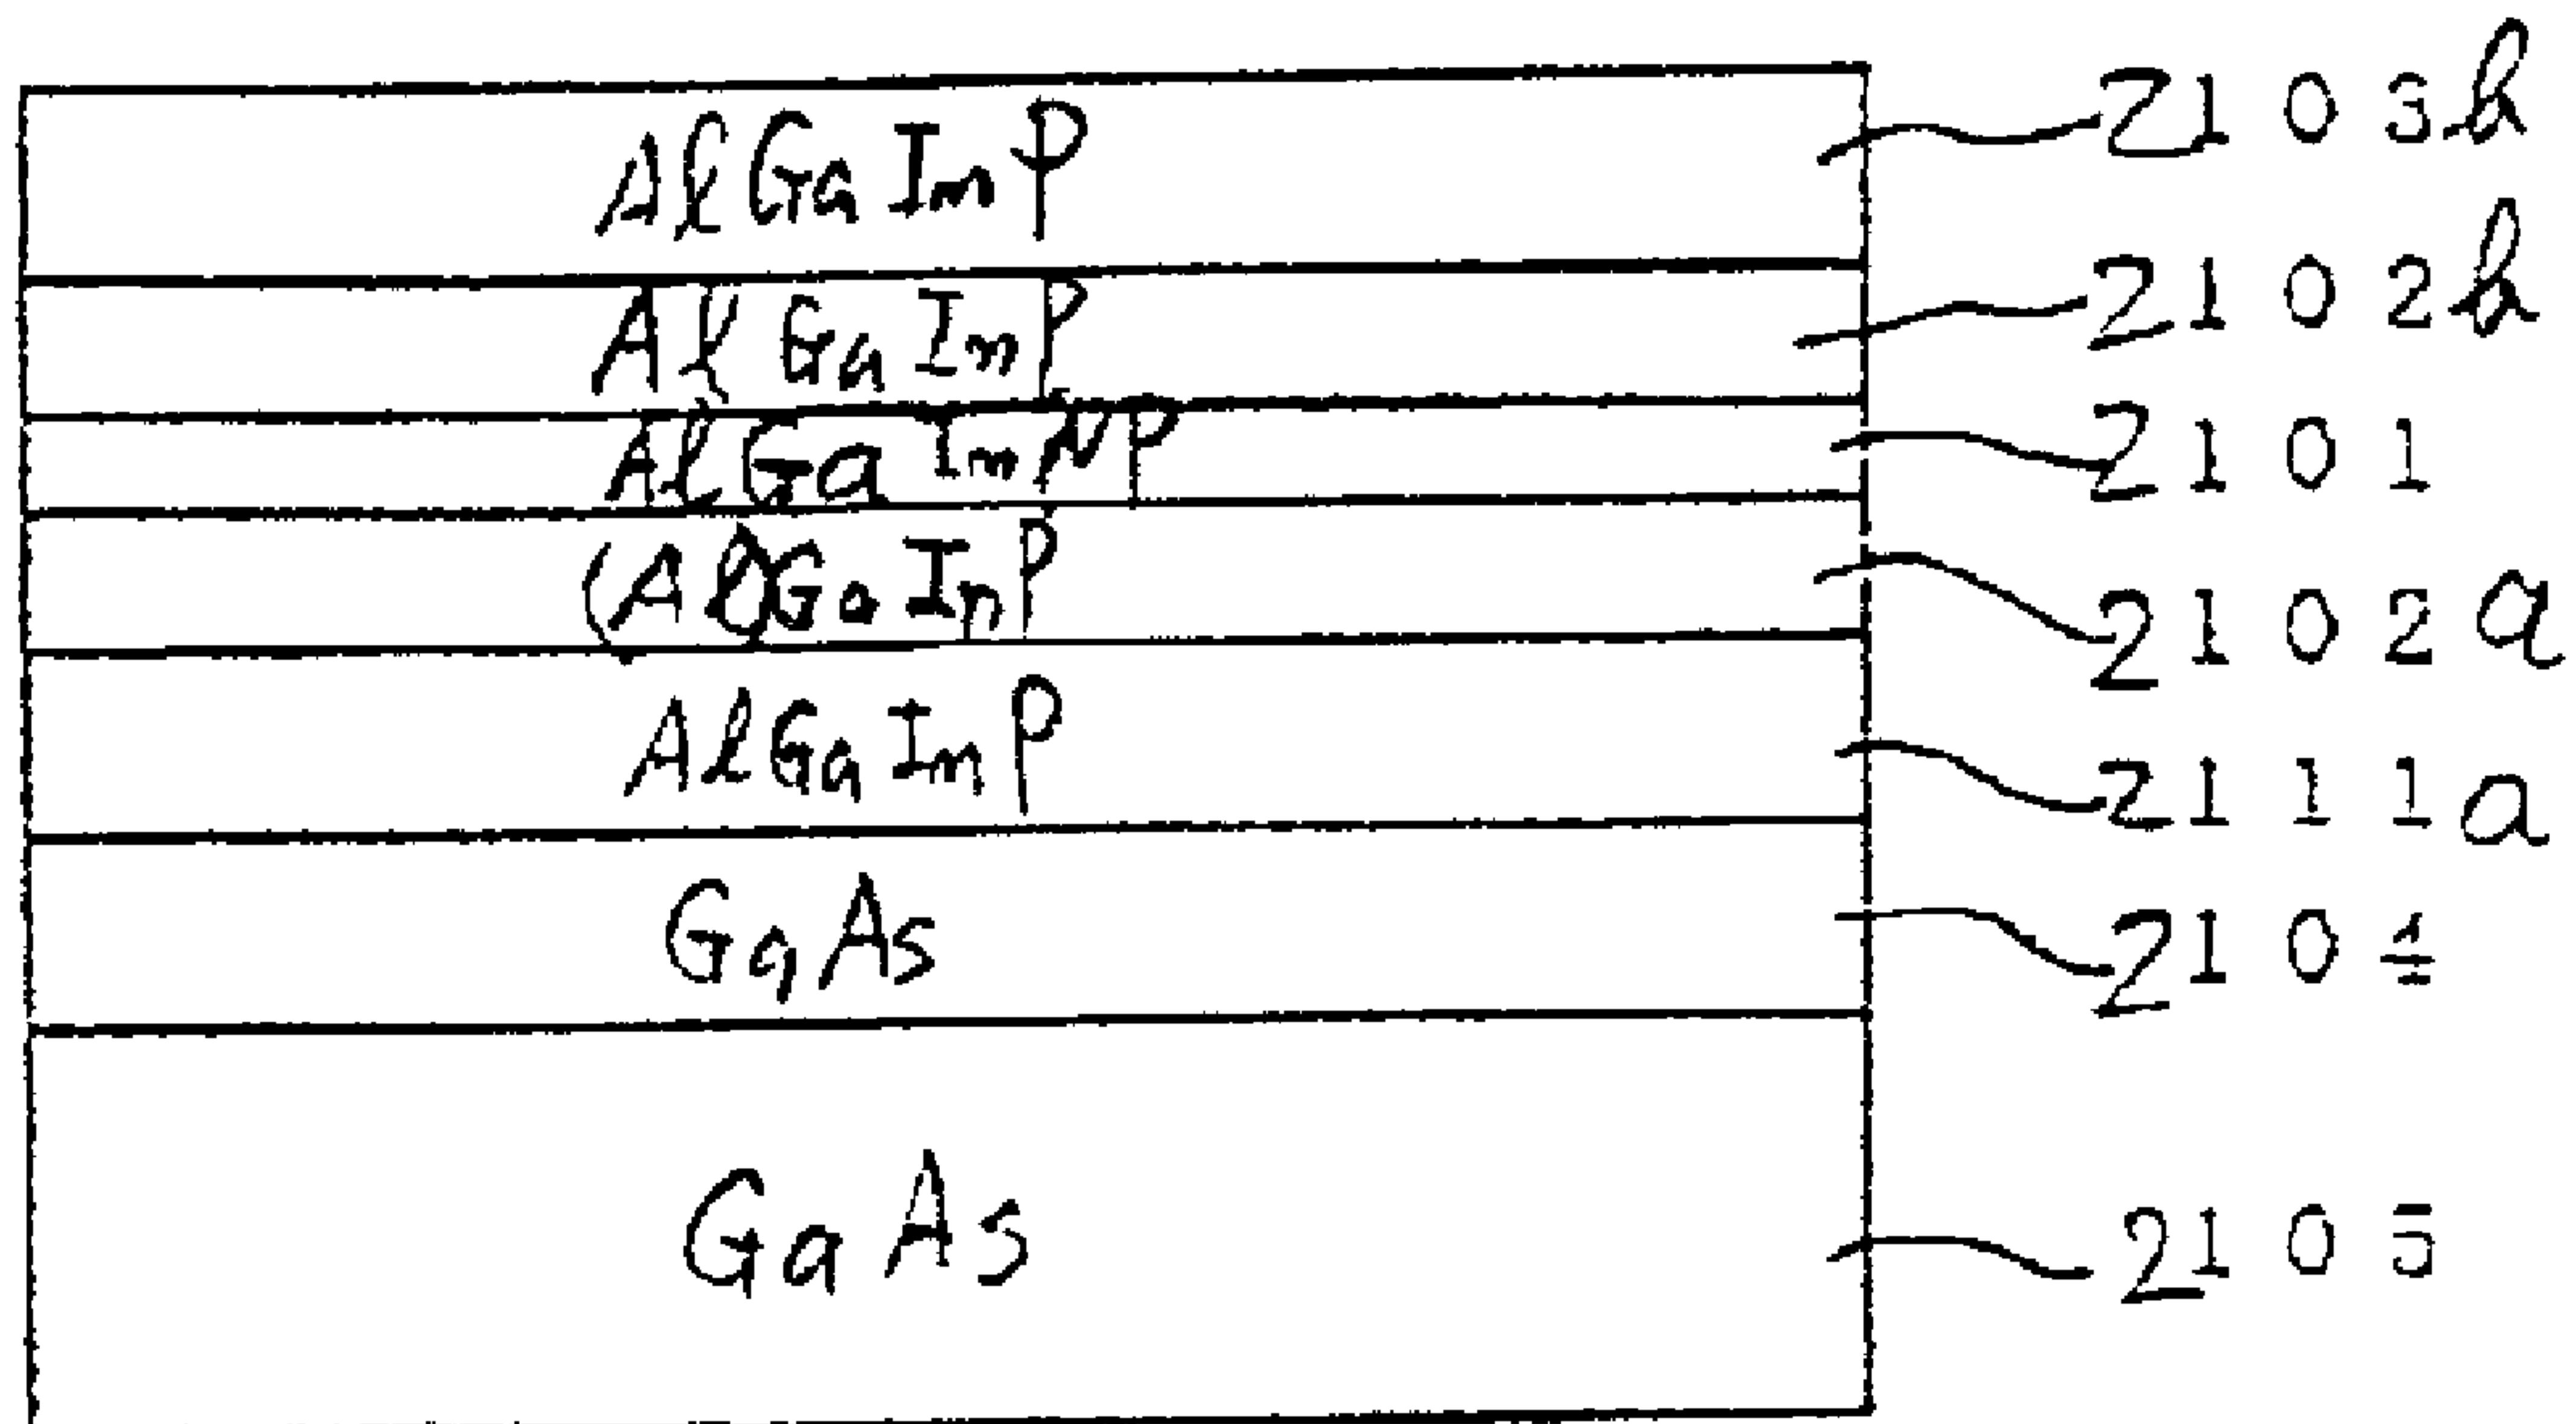 AlGaInP 2103b
AlGaInP 2102b
AlGaInNP 2101
(Al)GaInP 2102a
AlGaInP 2111a
GaAs 2104
GaAs 2105